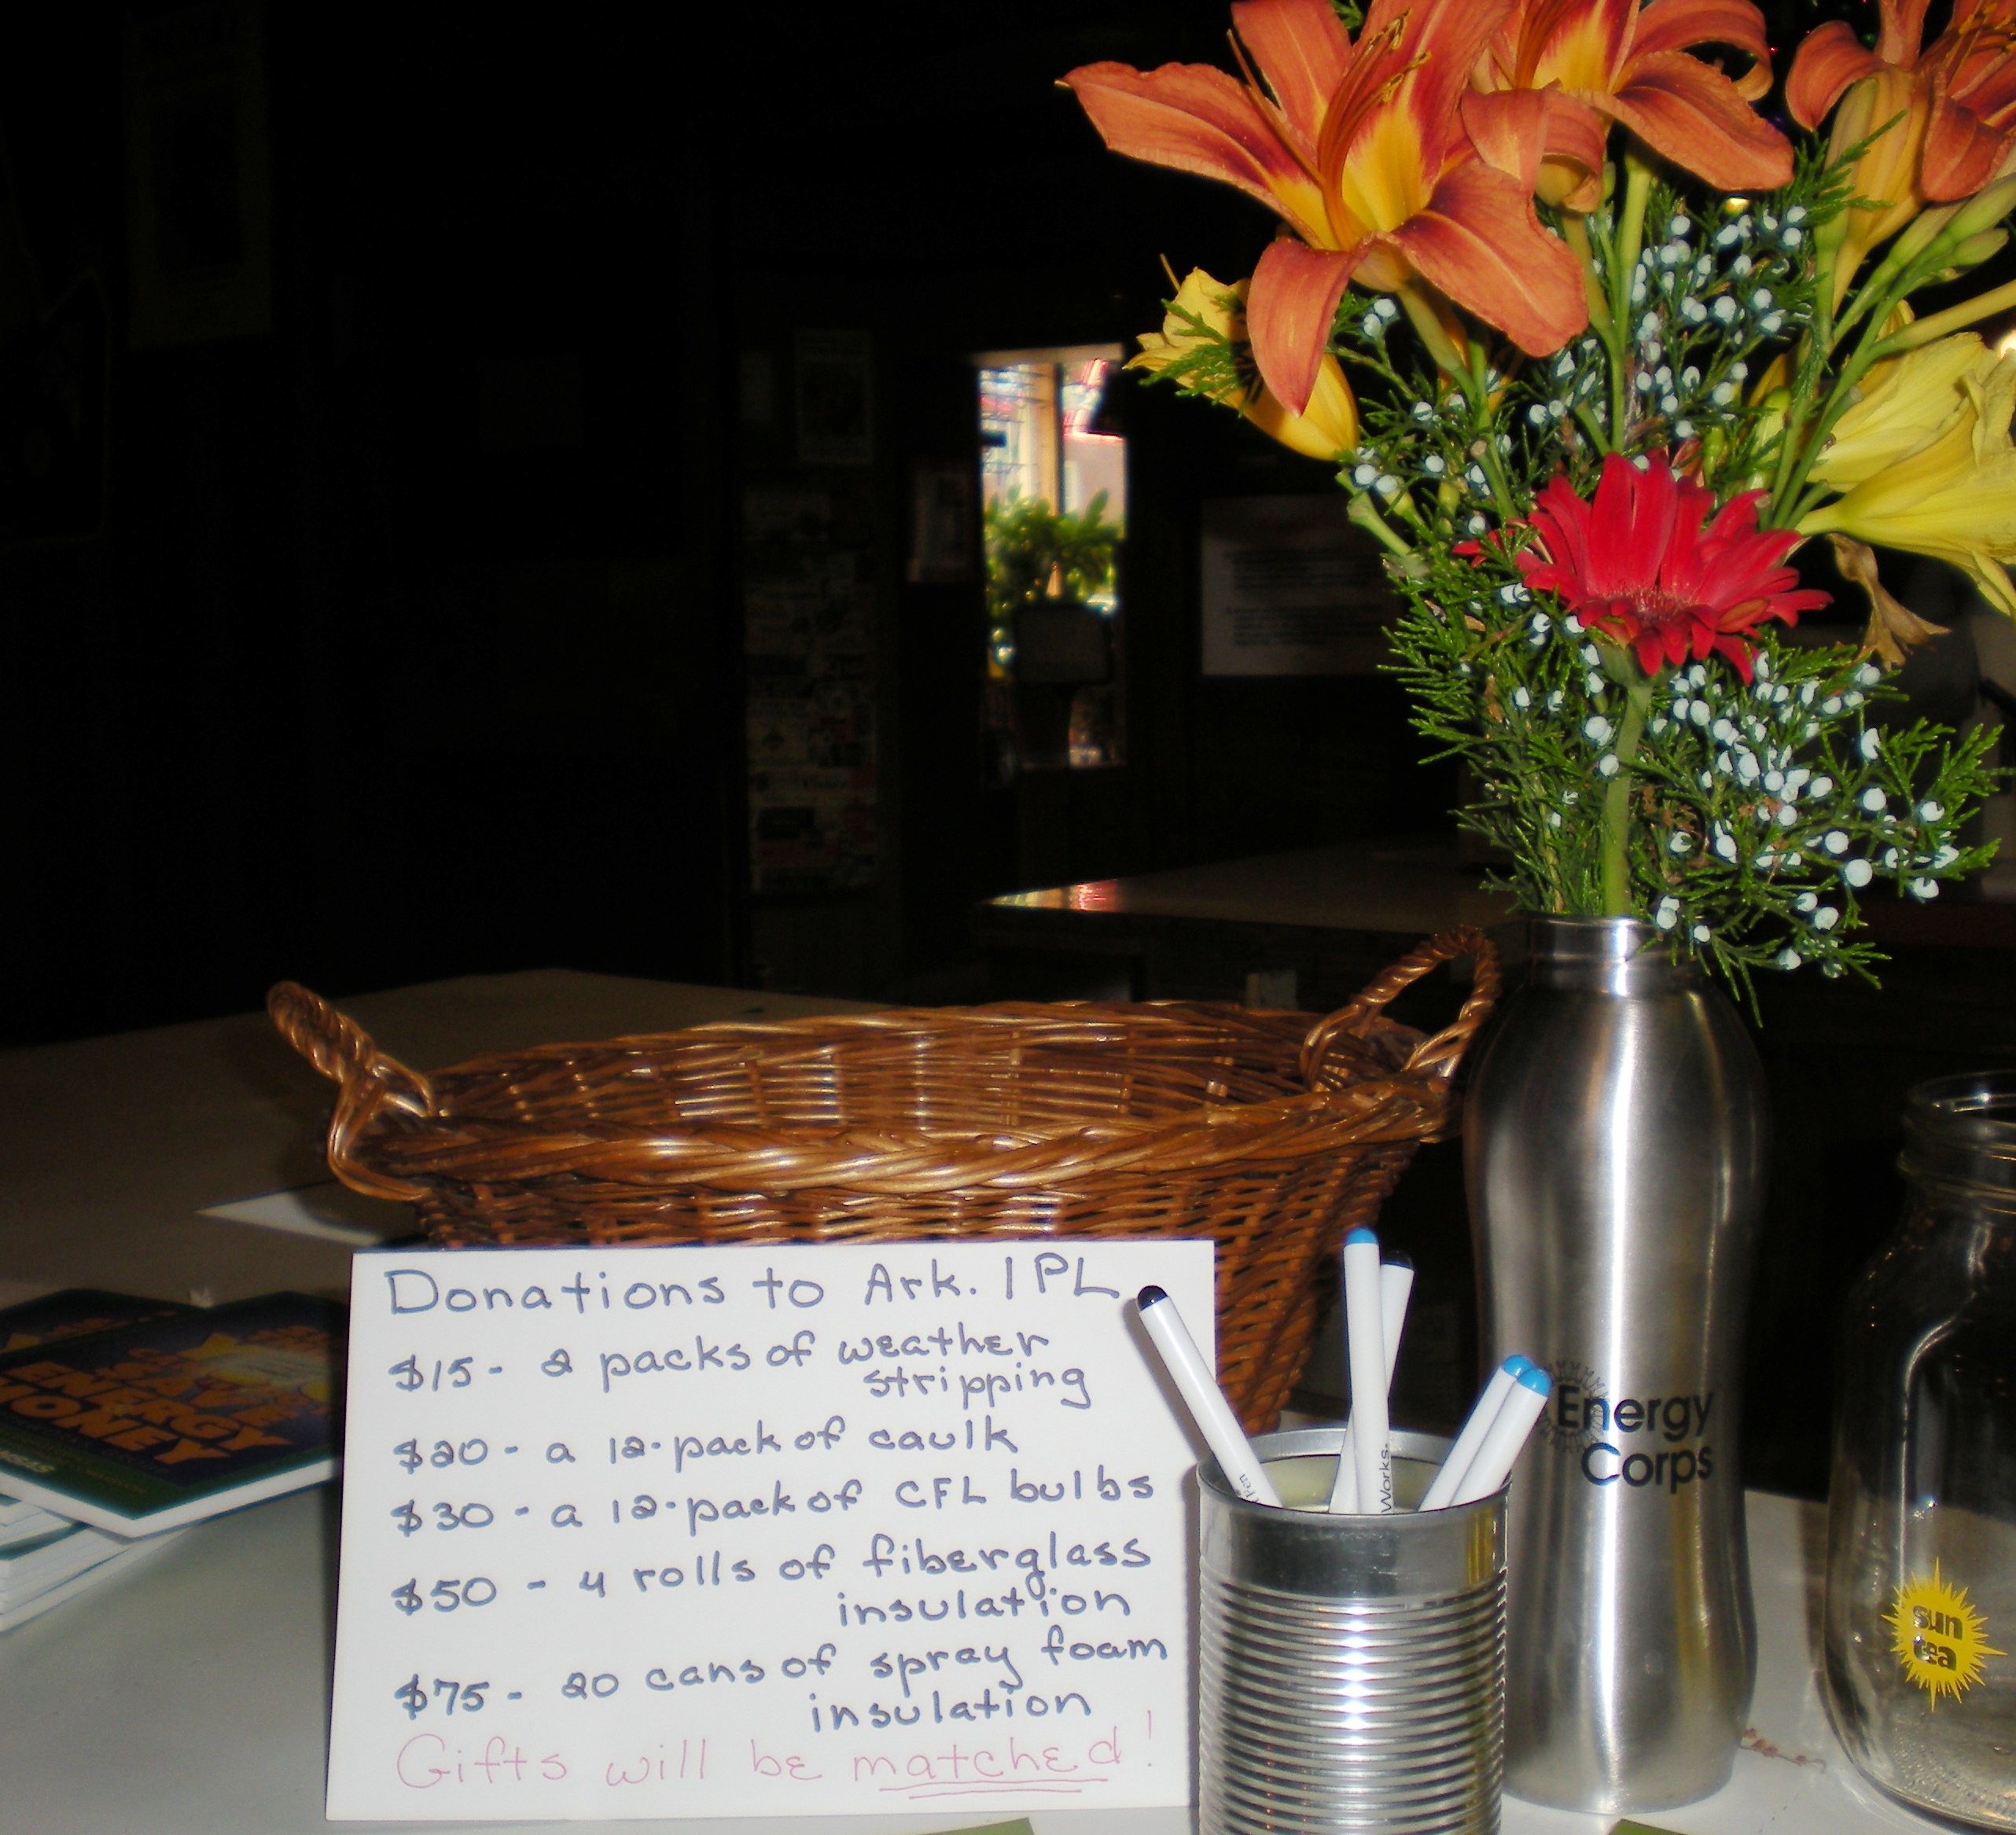 Donations to Ark. IPL
$15 - 2 packs of weather
stripping
$20 - a 12-pack of caulk
$30 - a 12-pack of CFL bulbs
$50 - 4 rolls of fiberglass
insulation
$75 - 20 cans of spray foam
insulation
Gifts will be matched!
Energy
Corps
sun
tea
Pen
Works.
SAVE
ENERGY
MONEY
ENERGY
MONEY